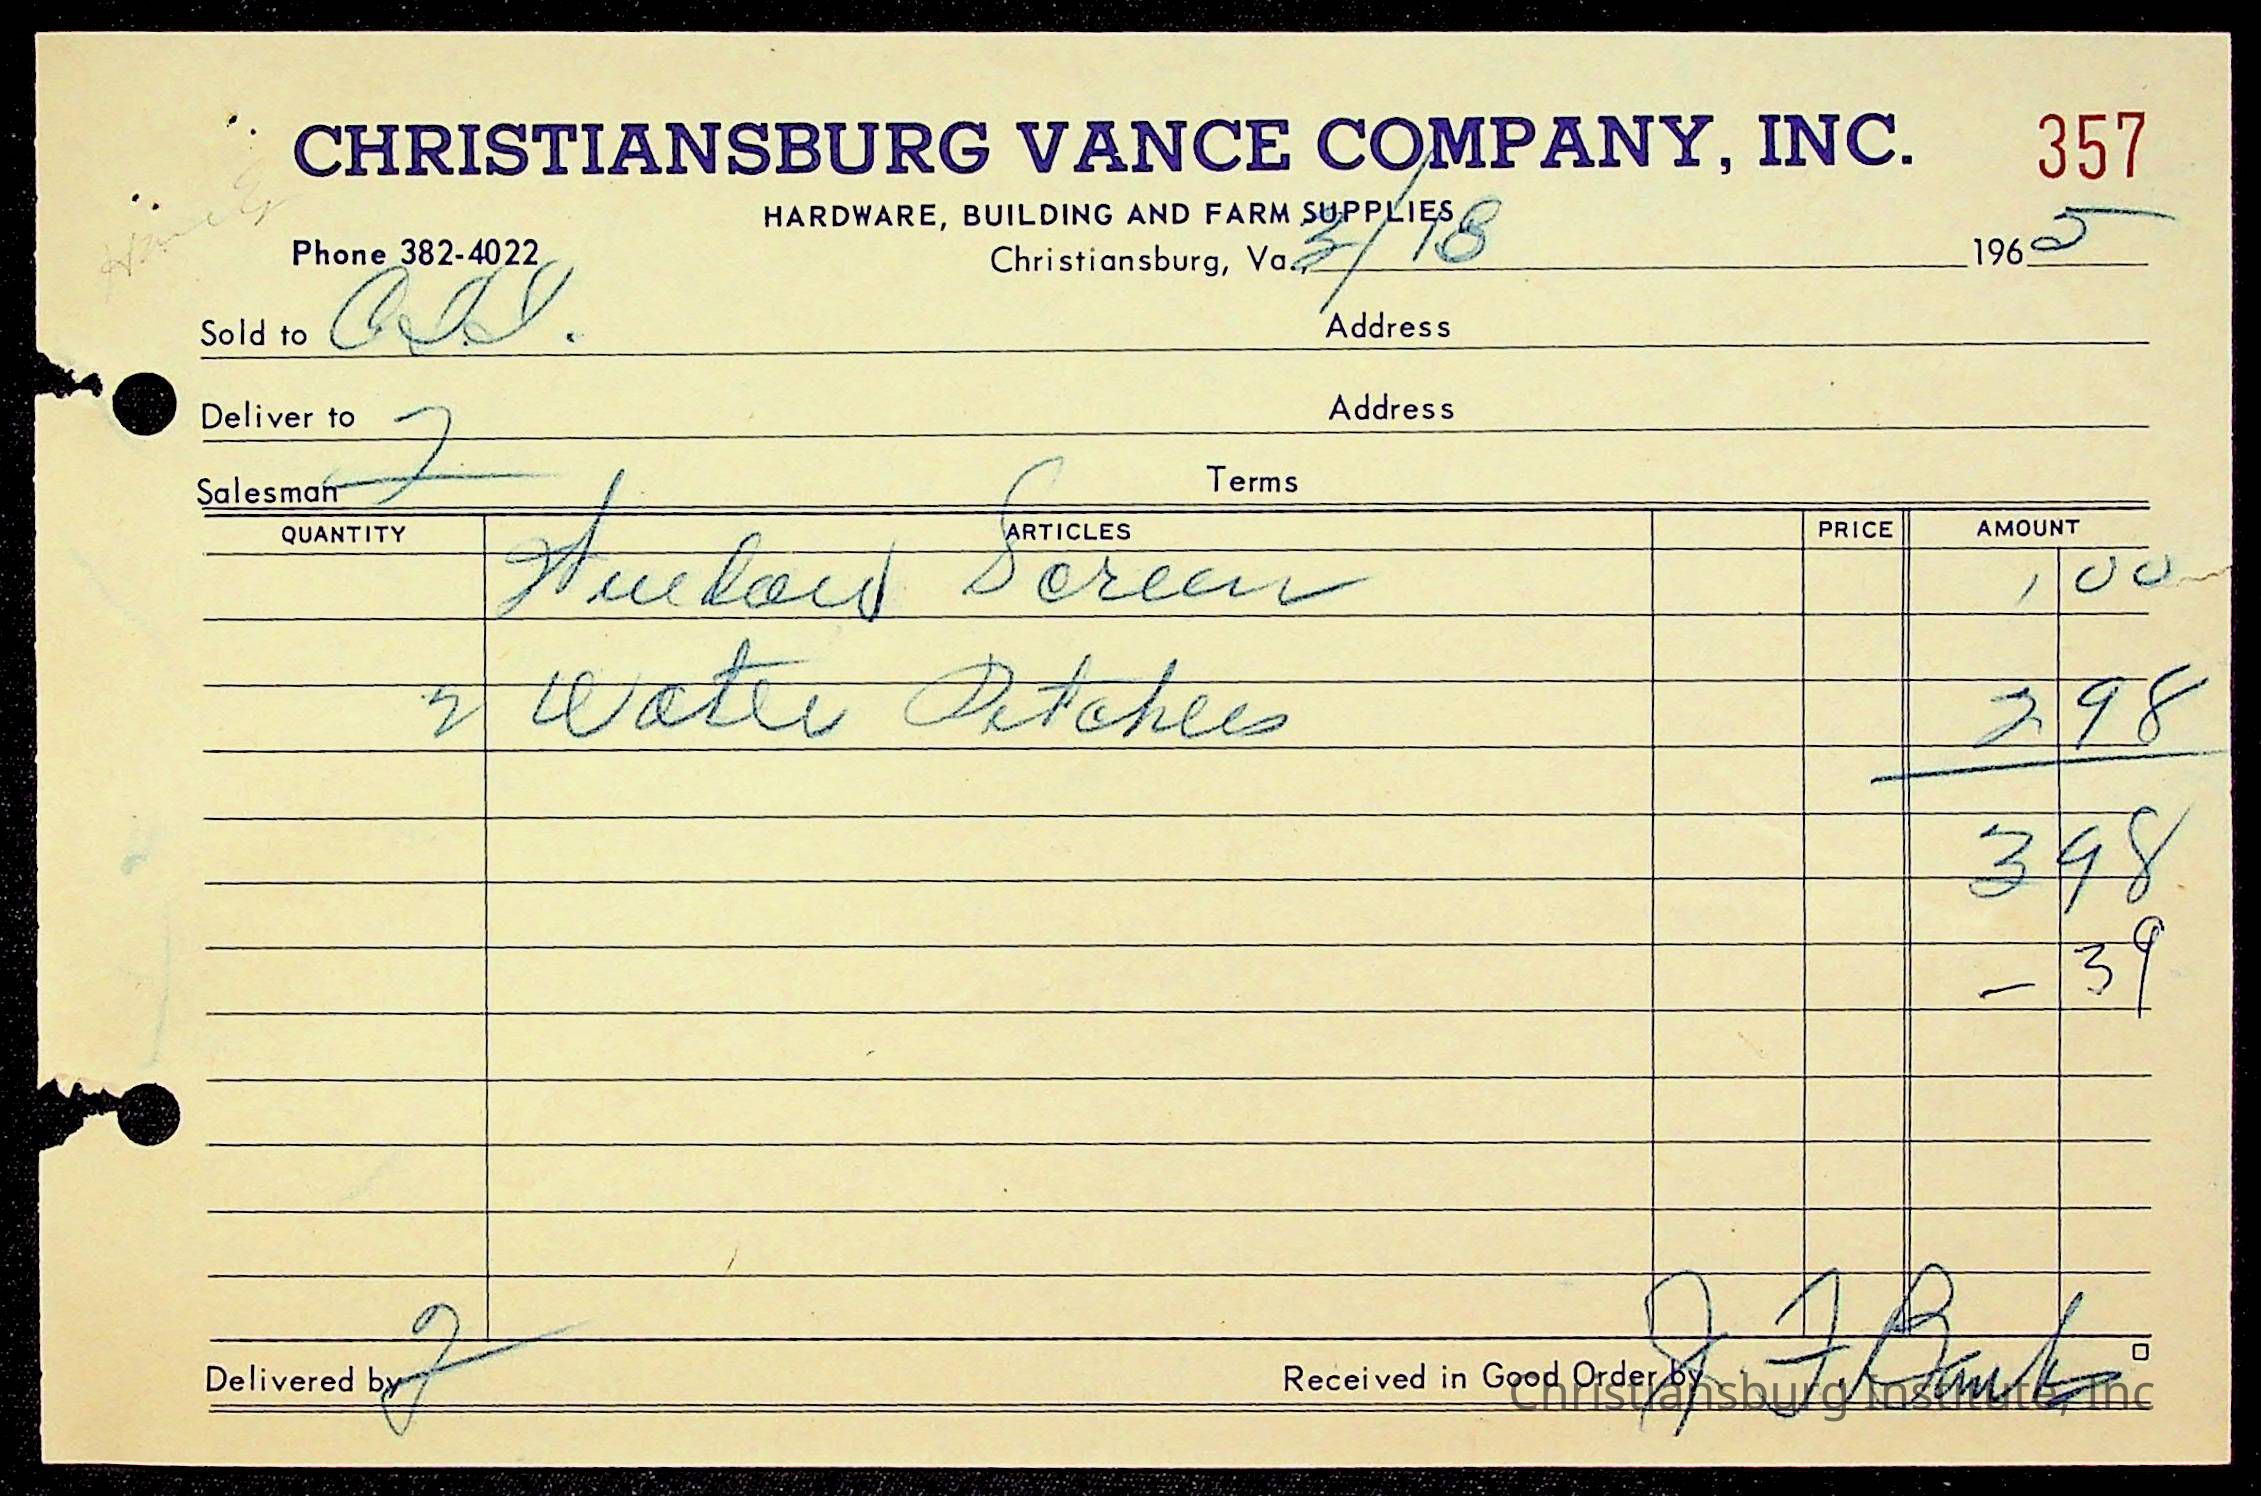 CHRISTIANSBURG VANCE COMPANY, INC. 357
HARDWARE, BUILDING AND FARM SUPPLIES
Phone 382-4022
Christiansburg, Va., 3/18 1965
Sold to C.I.I. Address
Deliver to Address
Salesman Terms
QUANTITY ARTICLES PRICE AMOUNT
Window Screen 1 00
2 Water Pitchers 2 98
3 98
- 39
Delivered by Received in Good Order by J. F. Banks
Christiansburg Institute, Inc